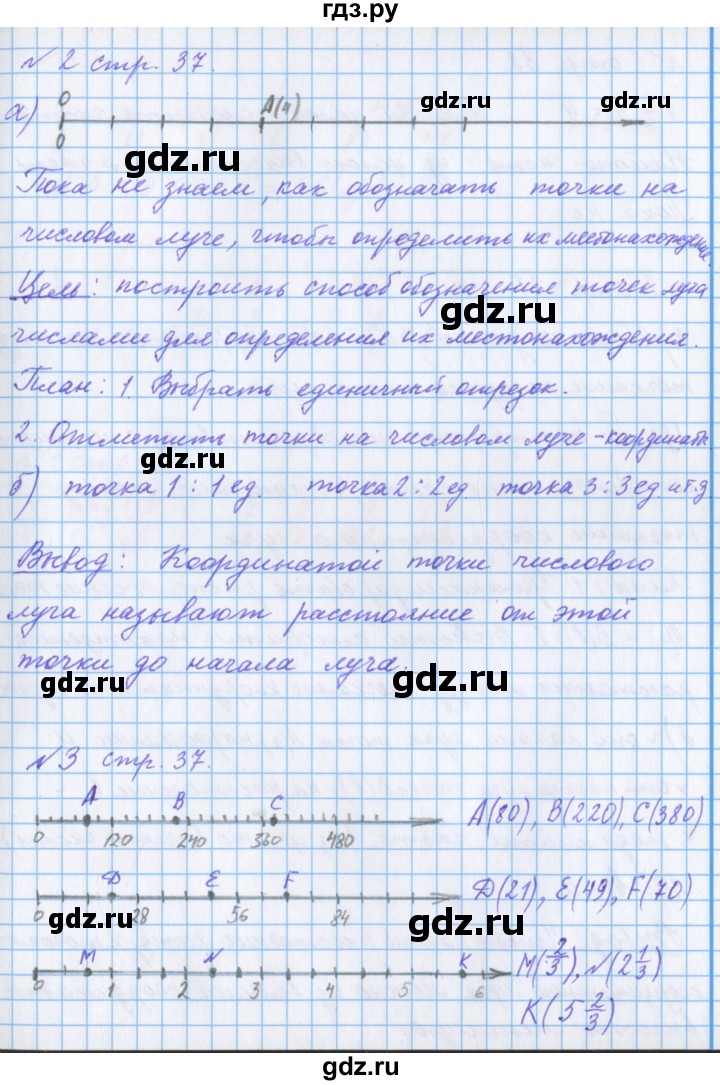 гдз.ру
№ 2 стр. 37.
а) 0 A(4)
0
gdz.ru gdz.ru
gdz.ru
Пока не знаем, как обозначать точки на
числовом луче, чтобы определить их местонахождение.
Цель: построить способ обозначения точек луча
gdz.ru gdz.ru
числами для определения их местонахождения.
План: 1. Выбрать единичный отрезок.
2. Отметить точки на числовом луче - координаты.
gdz.ru
б) точка 1 : 1 ед. точка 2 : 2 ед точка 3 : 3 ед и т.д
gdz.ru
Вывод: Координатой точки числового
луча называют расстояние от этой
точки до начала луча.
gdz.ru gdz.ru
№3 стр. 37.
A B C
A(80), B(220), C(380)
0 120 240 360 480
gdz.ru gdz.ru
D E F
D(21), E(49), F(70)
0 28 56 84
gdz.ru gdz.ru
M N K
M(2/3), N(2 1/3)
0 1 2 3 4 5 6
K(5 2/3)
gdz.ru
gdz.ru